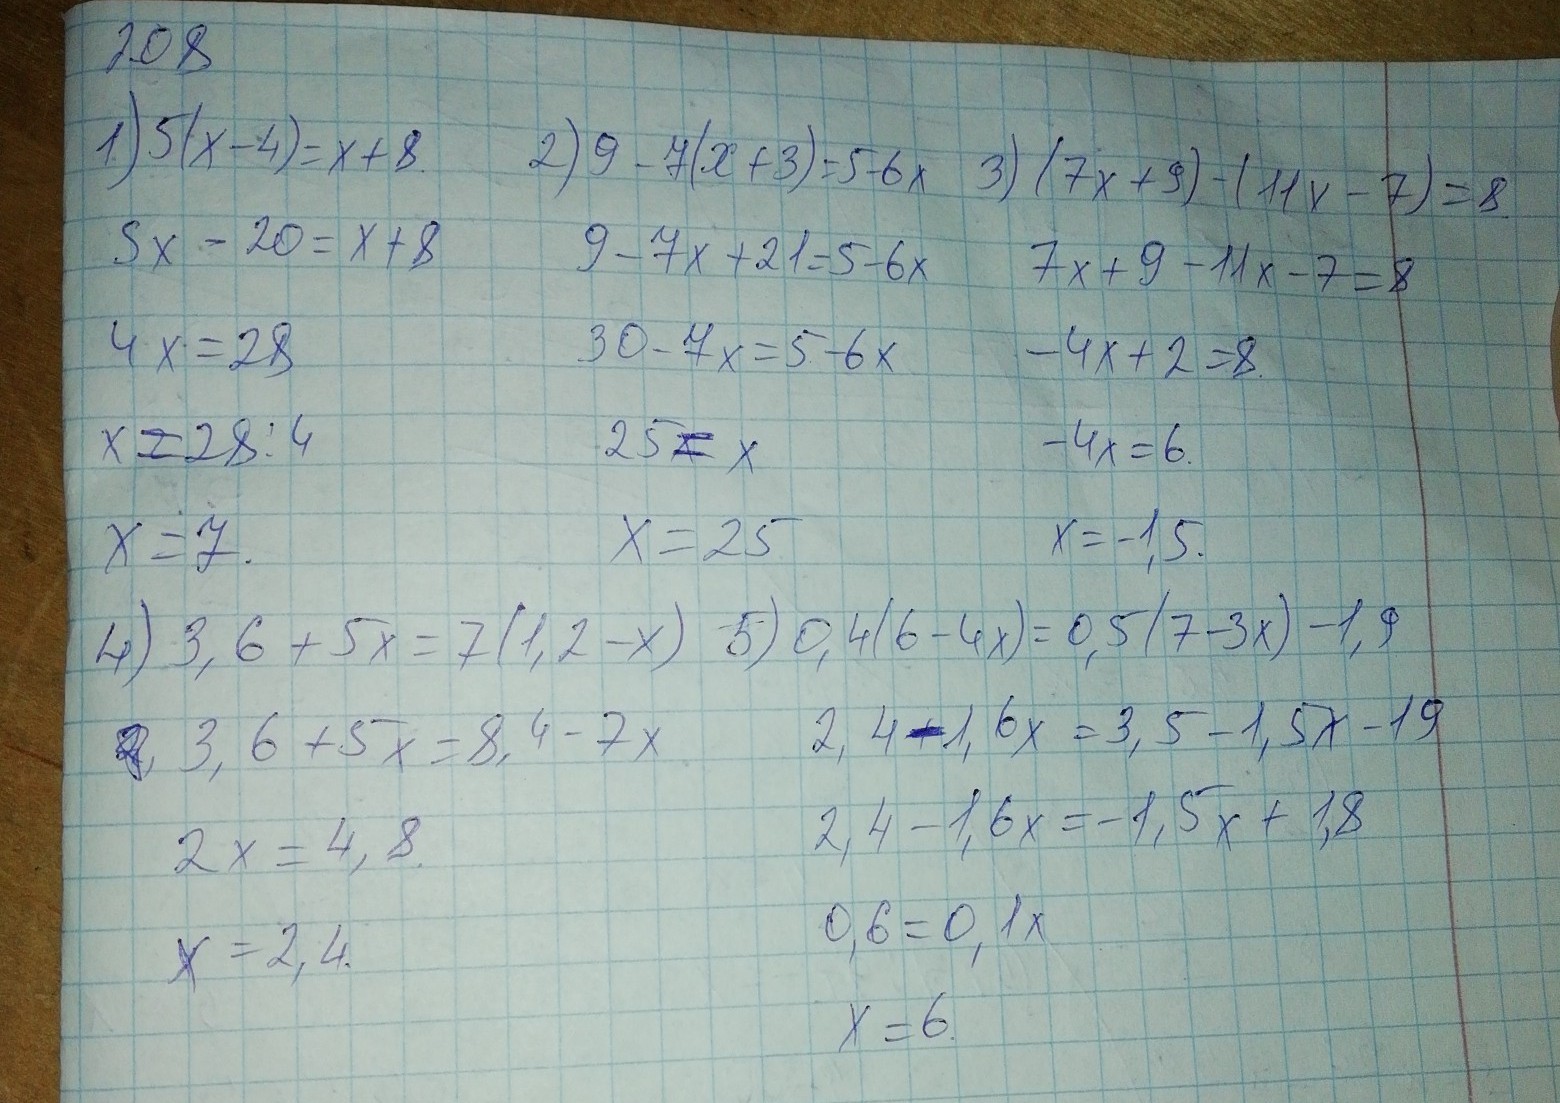 208
1) 5(x-4)=x+8.
5x-20=x+8
4x=28
x=28:4
x=7.
2) 9-7(x+3)=5-6x
9-7x+21=5-6x
30-7x=5-6x
25=x
x=25
3) (7x+9)-(11x-7)=8.
7x+9-11x-7=8
-4x+2=8.
-4x=6.
x=-1,5.
4) 3,6+5x=7(1,2-x)
3,6+5x=8,4-7x
2x=4,8.
x=2,4.
5) 0,4(6-4x)=0,5(7-3x)-1,9
2,4-1,6x=3,5-1,5x-19
2,4-1,6x=-1,5x+1,8
0,6=0,1x
x=6.